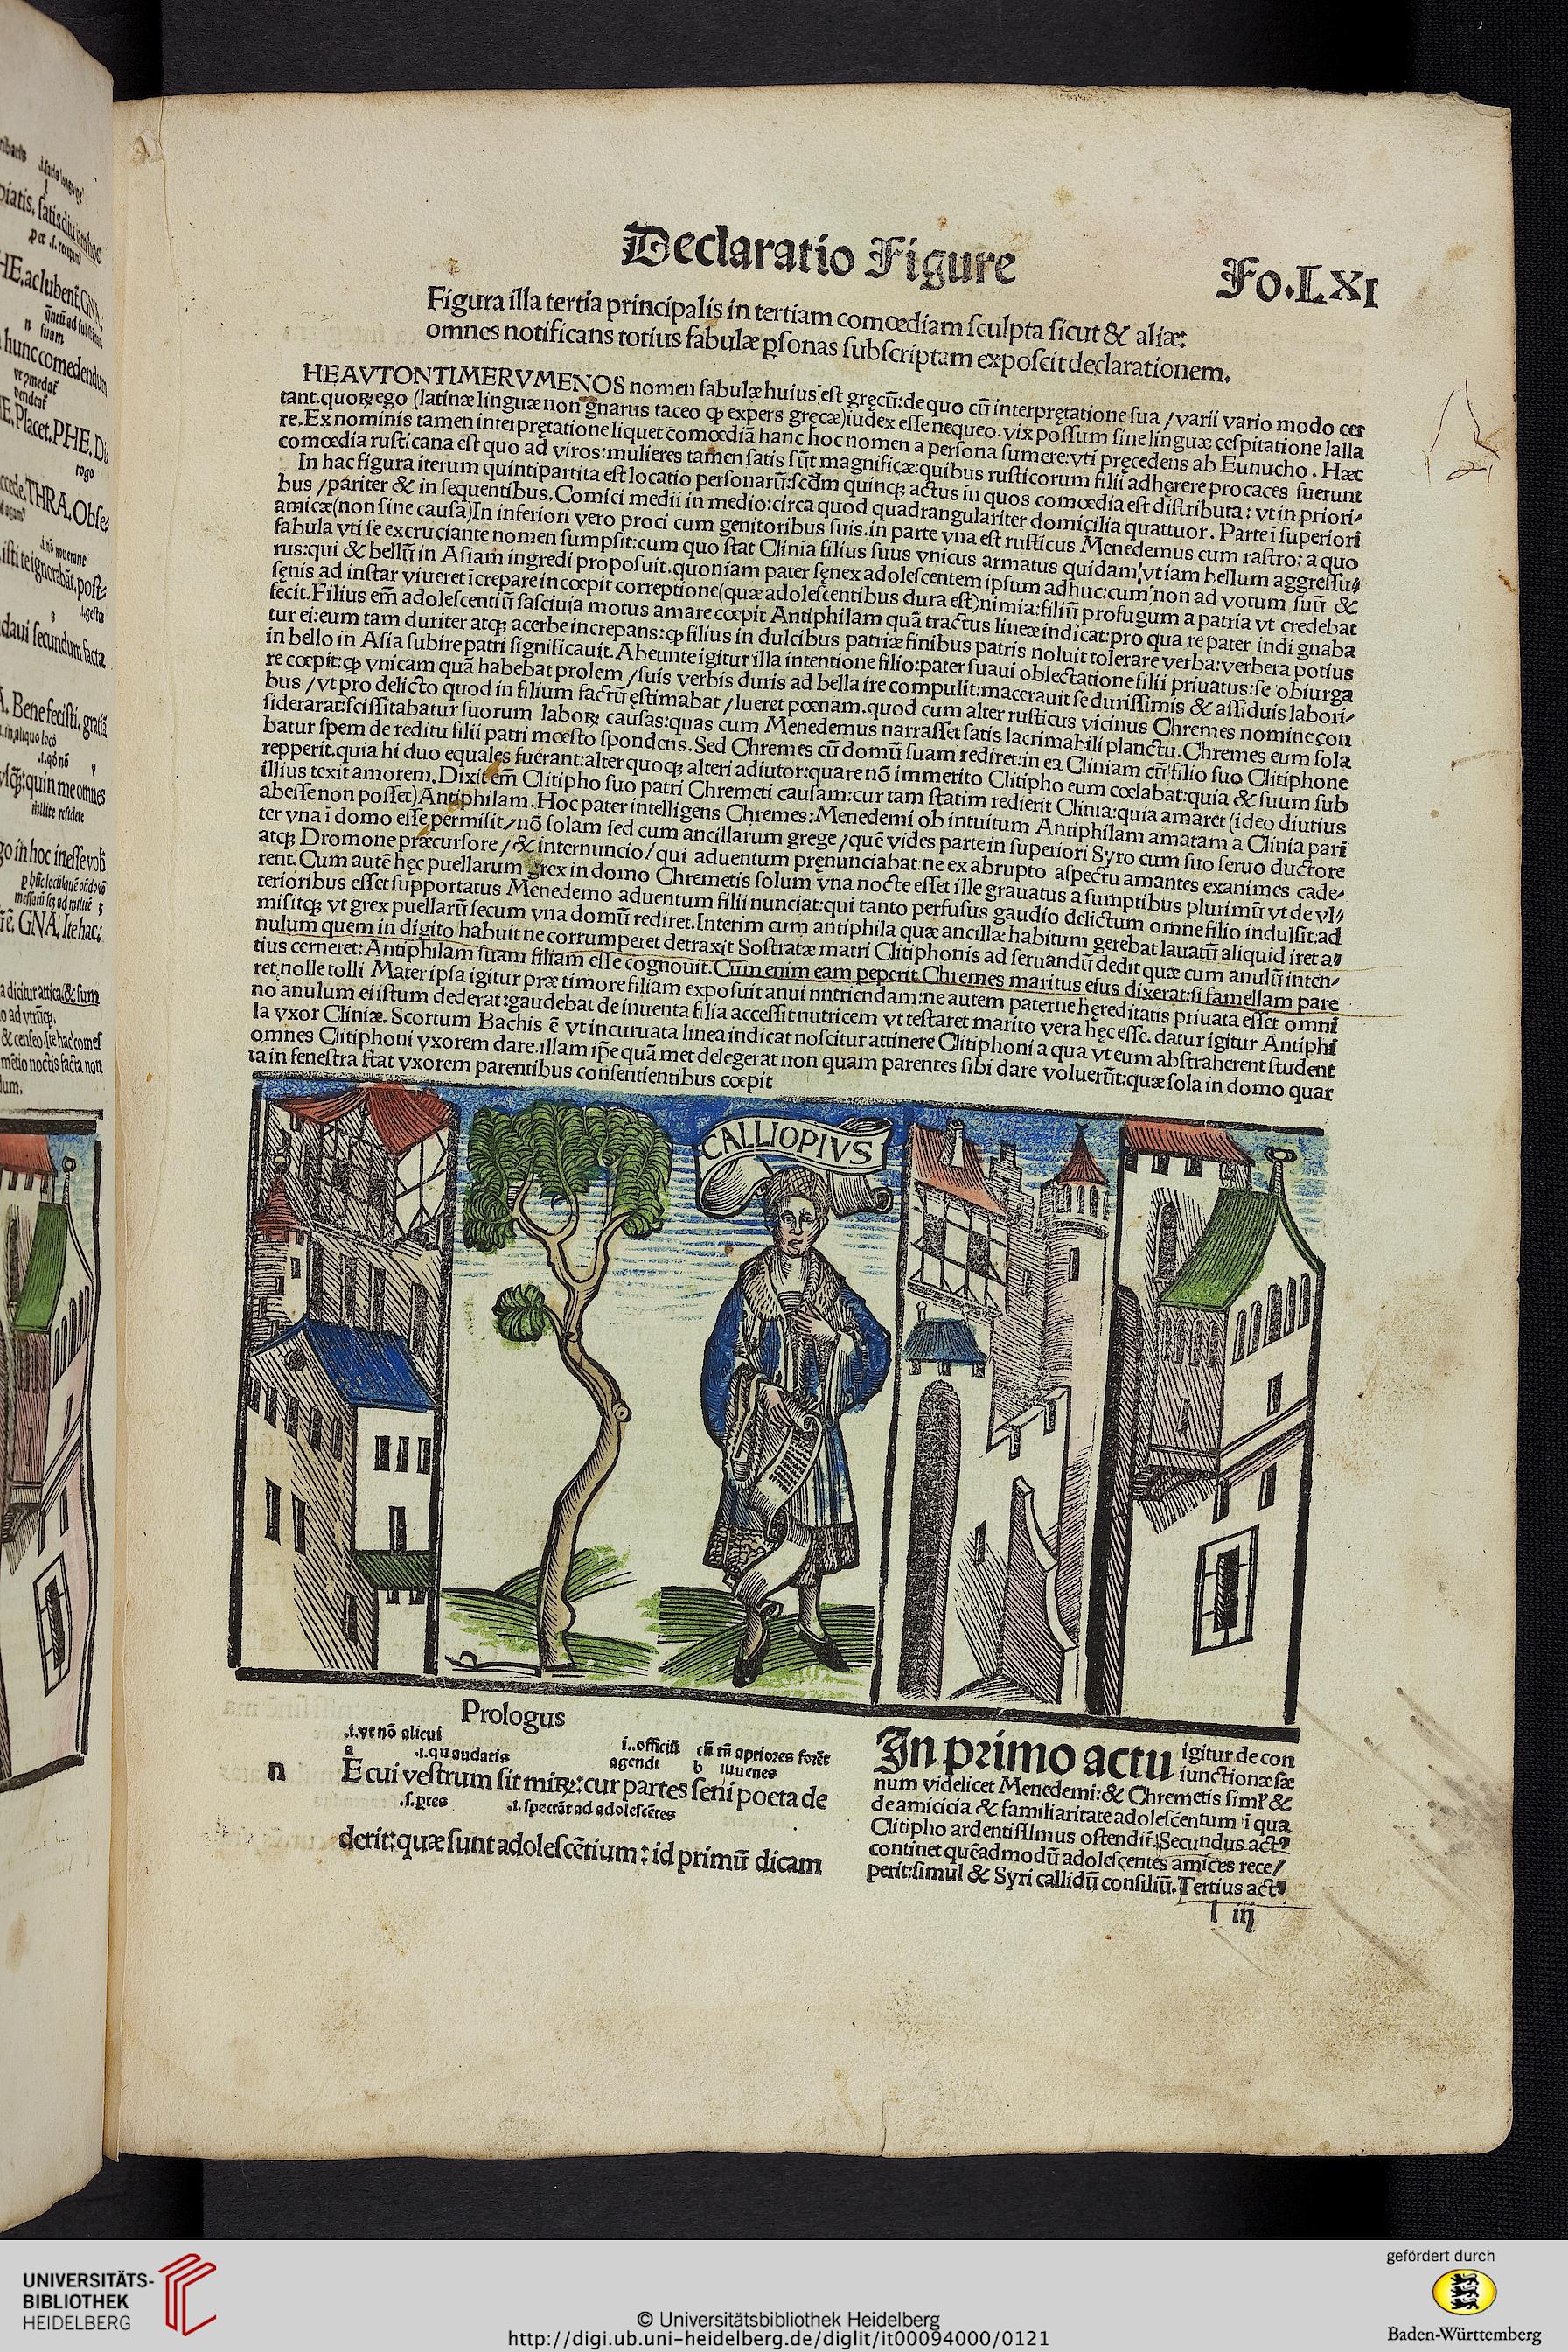 Declaratio Figure
Fo.LXI
Figura illa tertia principalis in tertiam comœdiam ſculpta ſicut & aliæ:
omnes notificans totius fabulæ ꝑſonas ſubſcriptam expoſcit declarationem.
HEAVTONTIMERVMENOS nomen fabulæ huius eſt gręcũ: de quo cũ interprętatione ſua / varii vario modo cer
tant. quoꝝ ego (latinæ linguæ non gnarus taceo ꝙ expers gręcæ) iudex eſſe nequeo. vix poſſum ſine linguæ ceſpitatione lalla
re. Ex nominis tamen interprętatione liquet comœdiã hanc hoc nomen a perſona ſumere: vti pręcedens ab Eunucho. Hæc
comœdia ruſticana eſt quo ad viros: mulieres tamen ſatis ſũt magnificæ: quibus ruſticorum filii adhęrere procaces fuerunt
In hac figura iterum quintipartita eſt locatio perſonarũ: ſcd̃m quinqꝫ actus in quos comœdia eſt diſtributa: vt in priori/
bus / pariter & in ſequentibus. Comici medii in medio: circa quod quadrangulariter domicilia quattuor. Parte ĩ ſuperiori
amicæ (non ſine cauſa) In inferiori vero proci cum genitoribus ſuis. in parte vna eſt ruſticus Menedemus cum raſtro: a quo
fabula vti ſe excruciante nomen ſumpſit: cum quo ſtat Clinia filius ſuus vnicus armatus quidam, vt iam bellum aggreſſu/
rus: qui & bellũ in Aſiam ingredi propoſuit. quoniam pater ſęnex adoleſcentem ipſum adhuc: cum non ad votum ſuũ &
ſęnis ad inſtar viueret ĩcrepare incœpit correptione (quæ adoleſcentibus dura eſt) nimia: filiũ profugum a patria vt credebat
fecit. Filius em̃ adoleſcentiũ laſciuia motus amare cœpit Antiphilam quã tractus lineæ indicat: pro qua re pater indi gnaba
tur ei: eum tam duriter atqꝫ acerbe increpans: ꝙ filius in dulcibus patriæ finibus patris noluit tolerare verba: verbera potius
in bello in Aſia ſubire patri ſignificauit. Abeunte igitur illa intentione filio: pater ſuaui oblectatione filii priuatus: ſe obiurga
re cœpit: ꝙ vnicam quã habebat prolem / ſuis verbis duris ad bella ire compulit: macerauit ſe duriſſimis & aſſiduis labori/
bus / vt pro delicto quod in filium factũ ęſtimabat / lueret pœnam. quod cum alter ruſticus vicinus Chremes nomine con
ſiderarat: ſciſſitabatur ſuorum laboꝝ cauſas: quas cum Menedemus narraſſet ſatis lacrimabili planctu. Chremes eum ſola
batur ſpem de reditu filii patri mœſto ſpondens. Sed Chremes cũ domũ ſuam rediret: in ea Cliniam cũ filio ſuo Clitiphone
repperit. quia hi duo equales fuerant: alter quoqꝫ alteri adiutor: quare nõ immerito Clitipho eum cœlabat: quia & ſuum ſub
illius texit amorem. Dixit em̃ Clitipho ſuo patri Chremeti cauſam: cur tam ſtatim redierit Clinia: quia amaret (ideo diutius
abeſſe non poſſet) Antiphilam. Hoc pater intelligens Chremes: Menedemi ob intuitum Antiphilam amatam a Clinia pari
ter vna ĩ domo eſſe permiſit / nõ ſolam ſed cum ancillarum grege / quẽ vides parte in ſuperiori Syro cum ſuo ſeruo ductore
atqꝫ Dromone præcurſore / & internuncio / qui aduentum pręnunciabat: ne ex abrupto aſpectu amantes exanimes cade/
rent. Cum autẽ hęc puellarum grex in domo Chremetis ſolum vna nocte eſſet ille grauatus a ſumptibus plurimũ vt de vl/
terioribus eſſet ſupportatus Menedemo aduentum filii nunciat: qui tanto perfuſus gaudio delictum omne filio indulſit: ad
miſitqꝫ vt grex puellarũ ſecum vna domũ rediret. Interim cum antiphila quæ ancillæ habitum gerebat lauatũ aliquid iret a/
nulum quem in digito habuit ne corrumperet detraxit Soſtratæ matri Clitiphonis ad ſeruandũ dedit quæ cum anulũ inten/
tius cerneret: Antiphilam ſuam filiam eſſe cognouit. Cum enim eam peperit Chremes maritus eius dixerat: ſi famellam pare
ret nolle tolli Mater ipſa igitur præ timore filiam expoſuit anui nntriendam: ne autem paterne hęreditatis priuata eſſet omni
no anulum ei iſtum dederat: gaudebat de inuenta filia acceſſit nutricem vt teſtaret marito vera hęc eſſe. datur igitur Antiphi
la vxor Cliniæ. Scortum Bachis ẽ vt incuruata linea indicat noſcitur attinere Clitiphoni a qua vt eum abſtraherent ſtudent
omnes Clitiphoni vxorem dare. illam ip̃e quã met delegerat non quam parentes ſibi dare voluerũt: quæ ſola in domo quar
ta in feneſtra ſtat vxorem parentibus conſentientibus cœpit
CALLIOPIVS
Prologus
.i. vt nõ alicui
a .i. qu audatis
i. officiũ cũ tñ aptiores forẽt
agendi b iuuenes
n E cui veſtrum ſit miꝝ: cur partes ſeni poeta de
.ſ. ꝑtes .i. ſpectãt ad adoleſcẽtes
derit: quæ ſunt adoleſcẽtium: id primũ dicam
In primo actu igitur de con
iunctione ſæ
num videlicet Menedemi: & Chremetis ſimꝉ &
de amicicia & familiaritate adoleſcentum ĩ qua
Clitipho ardentiſſimus oſtendit̃. Secundus actꝰ
continet quẽadmodũ adoleſcentes amices rece/
perit: ſimul & Syri callidũ conſiliũ. Tertius actꝰ
l iij
UNIVERSITÄTS-
BIBLIOTHEK
HEIDELBERG
© Universitätsbibliothek Heidelberg
http://digi.ub.uni-heidelberg.de/diglit/it00094000/0121
gefördert durch
Baden-Württemberg